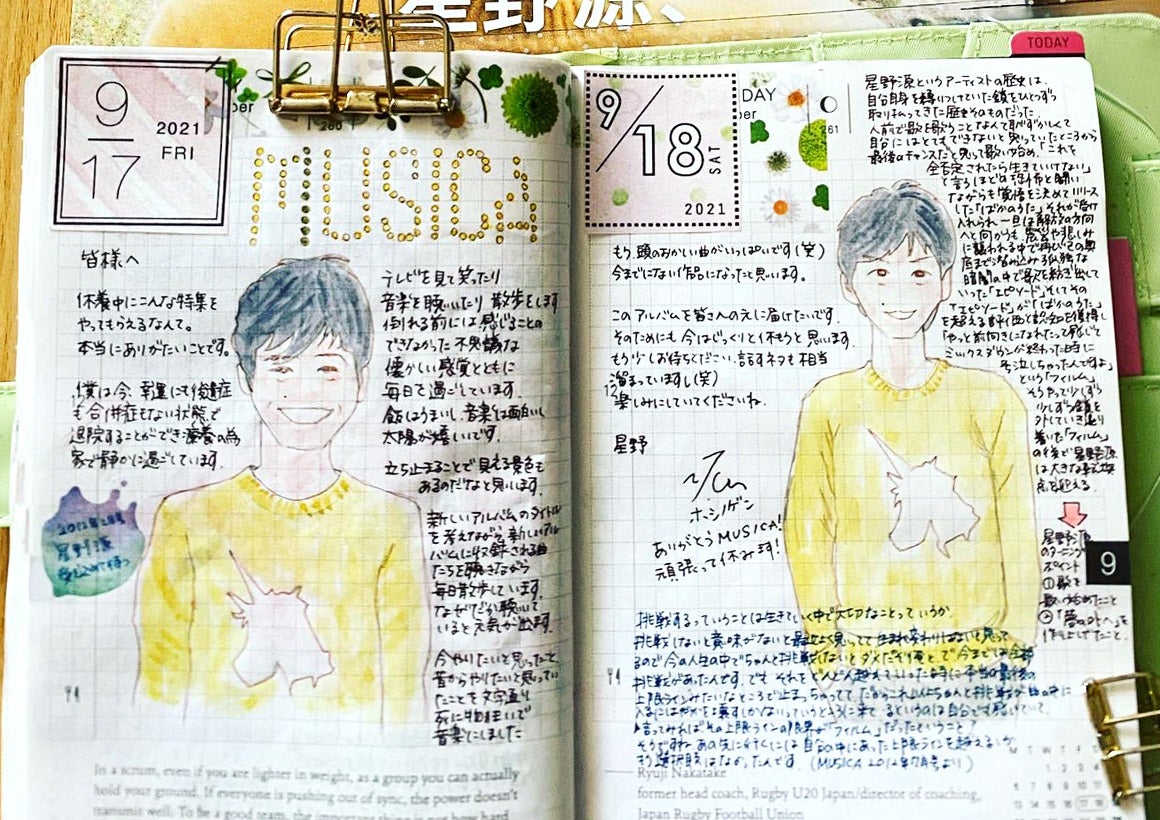 星野源、
TODAY
9
17
2021
FRI
MUSICA
皆様へ
休養中にこんな特集を
やってもらえるなんて。
本当にありがたいことです。
僕は今、幸運にも後遺症
も合併症もない状態で
退院することができ療養の為
家で静かに過ごしています。
2012年2月号
星野源
テレビを見て笑ったり
音楽を聴いたり散歩をします
倒れる前には感じることの
できなかった不思議な
優しい感覚とともに
毎日を過ごしています。
飯はうまいし、音楽は面白いし
太陽が嬉しいです。
立ち止まることで見える景色も
あるのだなと思います。
新しいアルバムのタイトル
を考えながら、新しいアル
バムに収録される曲
たちを聴きながら
毎日散歩しています。
なぜだか聴いて
いると元気が出ます。
今やりたいと思ったこと、
昔からやりたいと思ってい
たことを文字通り
死に物狂いで
音楽にしました
In a scrum, even if you are lighter in weight, as a group you can actually
hold your ground. If everyone is pushing out of sync, the power doesn't
transmit well. To be a good team, the important thing is not how hard
9/18
SAT
2021
DAY
61
もう、頭のおかしい曲がいっぱいです(笑)
今までにない作品になったと思います。
このアルバムを皆さんの元に届けたいです。
そのためにも今はじっくりと休もうと思います。
もう少しお待ちください。話すネタも相当
溜まっていますし(笑)
楽しみにしていてくださいね。
星野
ホシノゲン
ありがとうMUSICA!
頑張って休みます!
星野源というアーティストの歴史は、
自分自身を縛りつけていた鎖をひとつずつ
取り払ってきた歴史そのものだった
人前で歌を歌うことなんて恥ずかしくて
自分にはとてもできないと思っていたところから
最後のチャンスだと思って歌い始め、「これを
全否定されたら生きていけない」
と言うほどの恐怖と闘い
ながらも覚悟を決めてリリース
した「ばかのうた」それが受け
入れられ一旦は解放の方向
へと向かうも
暗闇の中で歌を紡ぎ出して
いった「エピソード」そしてその
「エピソード」が「ばかのうた」
を超える評価と認知を獲得し
「やっと前向きになれたって感じで
ミックスダウンが終わった時に
という「フィルム」
そうやって少しずつ
少しずつ鎖を
外していき辿り
着いた「フィルム」
の後で星野源
は大きな
点を迎える
星野源
のターニング
ポイント
①歌を
歌い始めたこと
作り上げたこと。
9
挑戦するっていうことは生きていく中で大切なことっていうか
挑戦しないと意味がないと最近よく思ってて生まれ変わりはないと思って
るので今の人生の中でちゃんと挑戦しないとダメだぞ俺と。で今までも全部
挑戦があったんです。でもそれをどんどん越えていった時に本当の最後の
上限ラインみたいなところで止まっちゃってて
言ってみればその上限ラインの限界が「フィルム」だったということ?
そうですね。あの先に行くには自分の中にあった上限ラインを超えるしか
もう選択肢はなかったんです。(MUSICA 2012年7月号より)
Ryuji Nakatake
former head coach, Rugby U20 Japan/director of coaching,
Japan Rugby Football Union